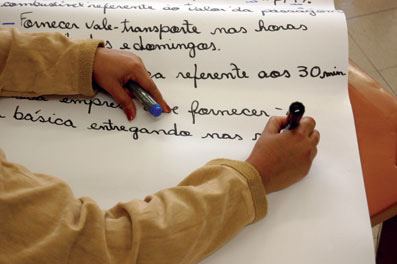 combustível referente ao valor da passagem
- Fornecer vale-transporte nas horas
e domingos.
referente aos 30 min
fornecer-
básica entregando nas